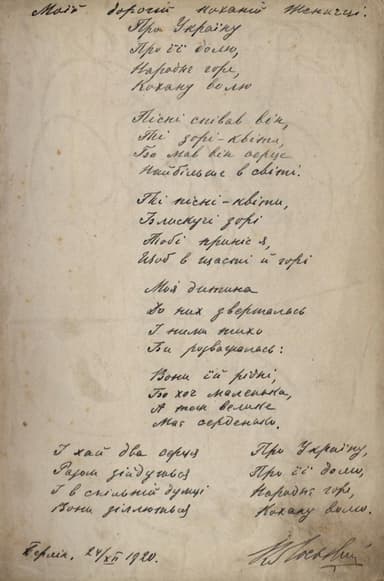 Моїй дорогій коханій Женичці.
Про Україну
Про її долю,
Народнє горе,
Кохану волю
Пісні співав він,
Ті зорі-квіти,
Бо мав він серце
Найбільше в світі.
Ті пісні-квіти,
Блискучі зорі
Тобі приніс я,
Щоб в щасті й горі
Моя дитина
До них звертался
І ними тихо
Би розважалась:
Вони їй рідні,
Бо хоч маленька,
А теж велике
Має серденько.
І хай два серця
Разом зійдуться
І в спільній думці
Вони зіллються
Про Україну,
Про її долю,
Народнє горе,
Кохану волю.
24/XII 1920.